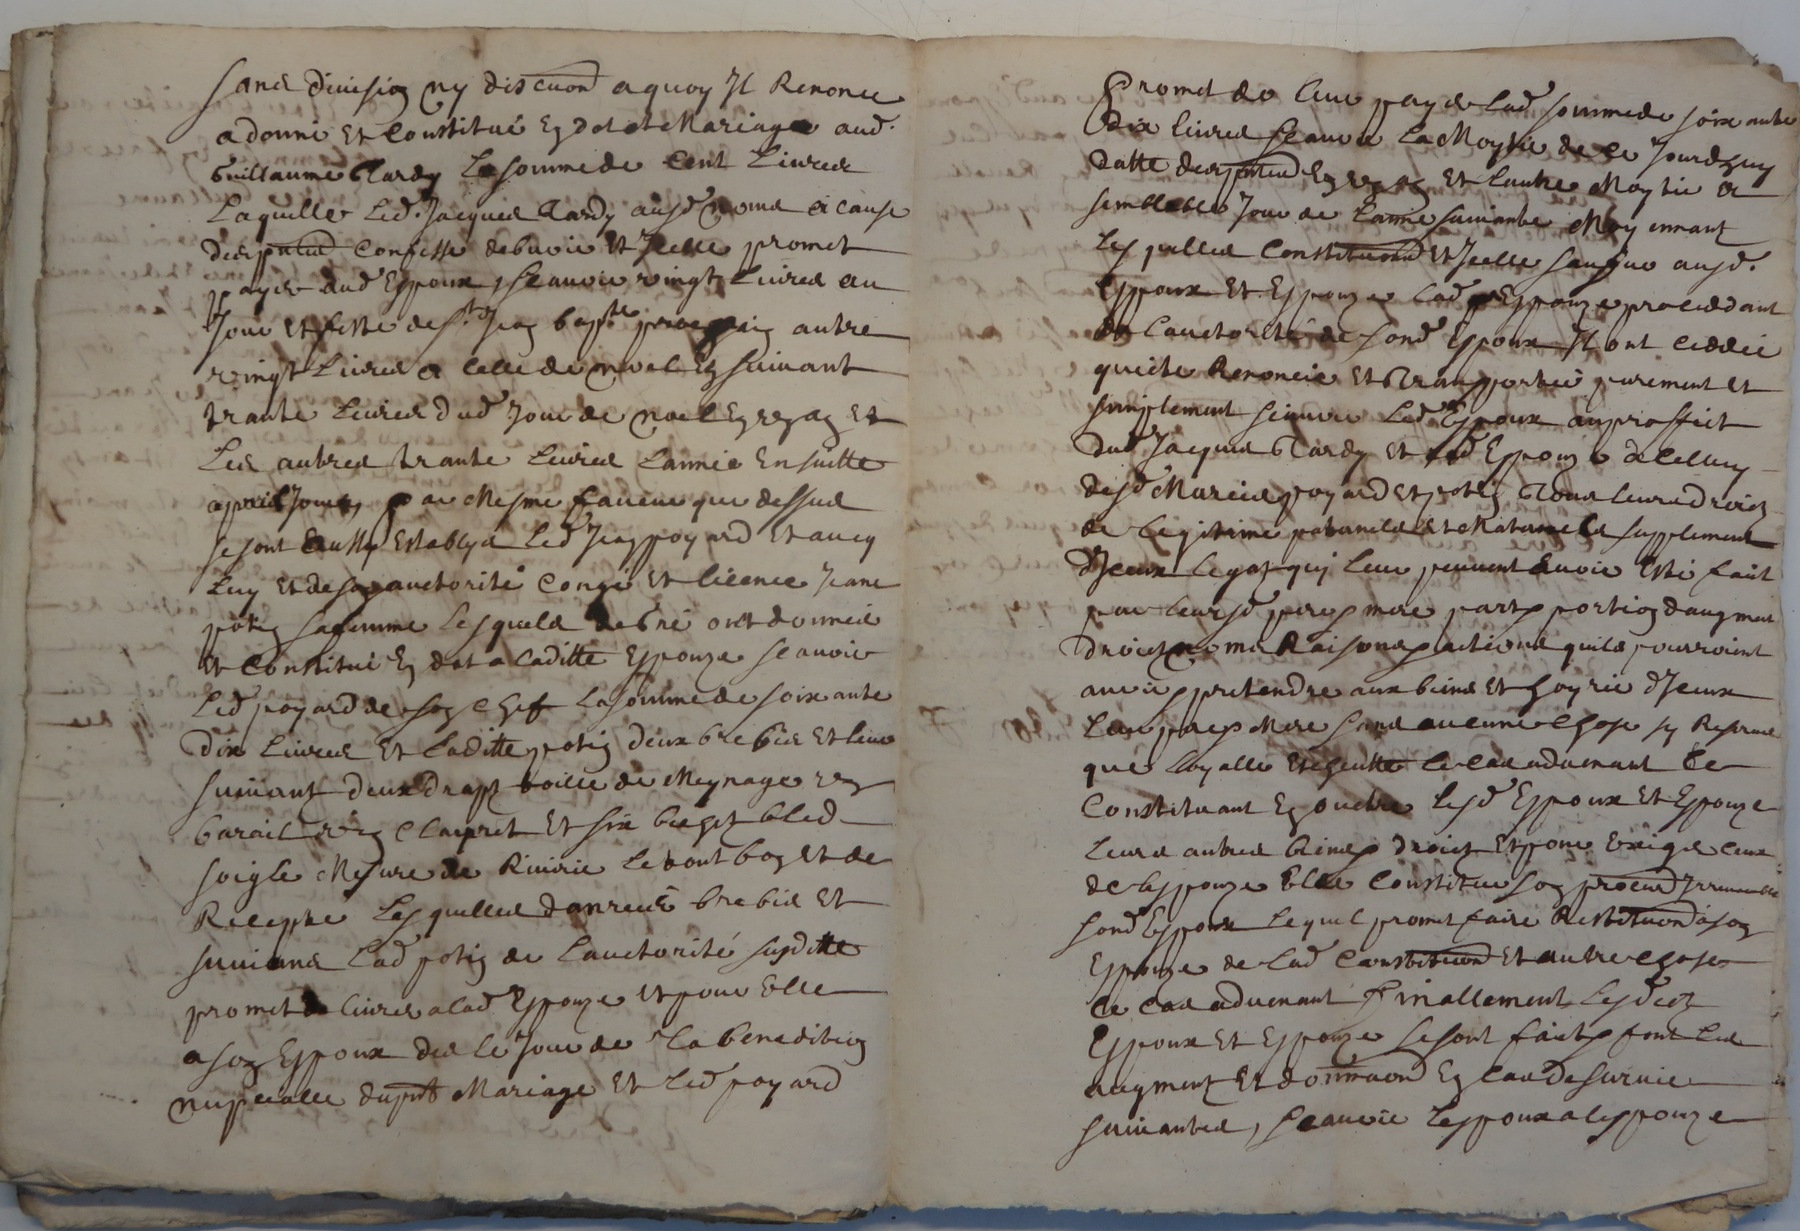 sans division ny discution a quoy Il Renonce
a donné Et Constitué En dot et Mariage aud.
Guillaume Tardy la somme de Cent Livres
Laquelle led. Jacques Tardy ausd. noms a cause
des pntes Confesse debvoir Et Icelle promet
payer aud Espoux, scauoir vingt Livres au
Jour et feste de St Jean bapte prochain autre
vingt Livres a celle de noel En suivant
trante Livres dud Jour de noel En
Les autres trante Livres Lannée Ensuitte
par Mesme faueur que dessus
se sont Establys Led Jean poyard Et aueq
Luy Et de son auctorité Congé et licence Jeane
potin sa femme Lesquels de gré ont donnés
Et Constitué En dot a Laditte Espouze scauoir
Led poyard de son Chef La somme de soixante
dix Livres Et Laditte potin deux brebis Et leur
suiuant deux drapz toille de Meynage
barail Et six bichetz bled
soigle Mesure de Riuirie Le tout bon Et de
Recepte Lesquelles danrées brebis Et
suiuans Lad potin de Lauctorité susditte
promet de liurer a lad Espouze Et pour Elle
a son Espoux des le Jour de La benedition
nuptialle du pnt Mariage Et Led poyard
Promet de leur payer Lad somme de soixante
dix liures scauoir La Moytié de ce Jourdhuy
datte des pntes En Et lautre Moytié a
semblable Jour de Lannée suiuante Moyennant
Lesquelles Constitutions Et Icelle sauque ausd.
Espoux Et Espouze Lad Espouze procedant
de Lauctorité de sond Espoux Ilz ont ceddée
quicte Renoncée Et Transportée purement et
simplement scauoir Led Espoux au proffict
dud Jacques Tardy et lad Espouze de Celluy
desd Mariés poyard et potin Tous leurs droictz
de legitime paternels Et Maternels supplement
dIceux Legat qui leur peuuent auoir Esté faict
par leursd pere & mere part & portion daugment
droictz noms Raisons & actions quils pourroient
auoir & pretendre aux biens Et hoyrie dIceux
Leurs pere & Mere sans aucune Chose sy Reseruer
que Loyalle Escheutte Le cas aduenant Se
Constituant En oultre Lesd Espoux Et Espouze
Leurs autres biens & droictz Et pour Exiger Ceux
de Lespouze Elle Constitue son procur Irreuocable
sond Espoux Lequel promet faire Restitution a son
Espouze de Lad Constitution Et autre Chose
Le Cas aduenant finallement Lesdictz
Espoux Et Espouze se sont faict & font Les
augment Et donnaon En Cas de suruie
suiuantes, scauoir Lespoux a lespouze